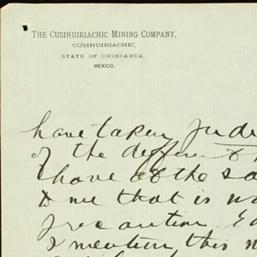 THE CUSIHUIRIACHIC MINING COMPANY,
CUSIHUIRIACHIC,
STATE OF CHIHUAHUA,
MEXICO,
have taken
of the different
I have at the sa
to me that is
precaution
I mention this